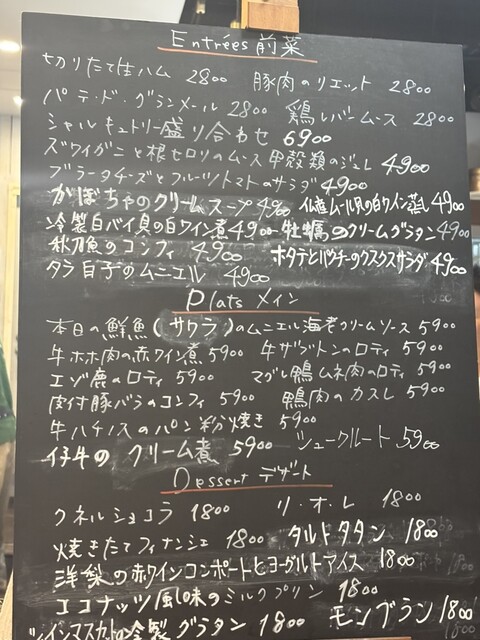 Entrées 前菜
切りたて生ハム 2800 豚肉のリエット 2800
パテ・ド・グランメール 2800 鶏レバームース 2800
シャルキュトリー盛り合わせ 6900
ズワイガニと根セロリのムース 甲殻類のジュレ 4900
ブラータチーズとフルーツトマトのサラダ 4900
かぼちゃのクリームスープ 4900 仏産ムール貝の白ワイン蒸し 4900
冷製白バイ貝の白ワイン煮 4900 牡蠣のクリームグラタン 4900
秋刀魚のコンフィ 4900 ホタテとパクチーのクスクスサラダ 4900
タラ白子のムニエル 4900
Plats メイン
本日の鮮魚(サワラ)のムニエル 海老クリームソース 5900
牛ホホ肉の赤ワイン煮 5900 牛ザブトンのロティ 5900
エゾ鹿のロティ 5900 マグレ鴨ムネ肉のロティ 5900
肉付豚バラのコンフィ 5900 鴨肉のカスレ 5900
牛ハチノスのパン粉焼き 5900
仔牛のクリーム煮 5900 シュークルート 5900
Dessert デザート
クネルショコラ 1800 リ・オ・レ 1800
焼きたてフィナンシェ 1800 タルトタタン 1800
洋梨の赤ワインコンポートとヨーグルトアイス 1800
ココナッツ風味のミルクプリン 1800
シャインマスカットの冷製グラタン 1800 モンブラン 1800